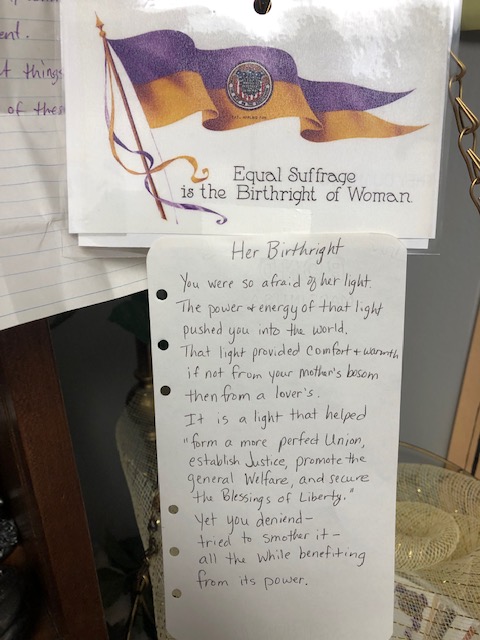 ent.
t things
of these
Equal Suffrage
is the Birthright of Woman
Her Birthright
You were so afraid of her light.
The power + energy of that light
pushed you into the world.
That light provided comfort + warmth
if not from your mother's bosom
then from a lover's.
It is a light that helped
"form a more perfect Union,
establish Justice, promote the
general Welfare, and secure
the Blessings of Liberty."
Yet you deniend–
tried to smother it–
all the while benefiting
from its power.